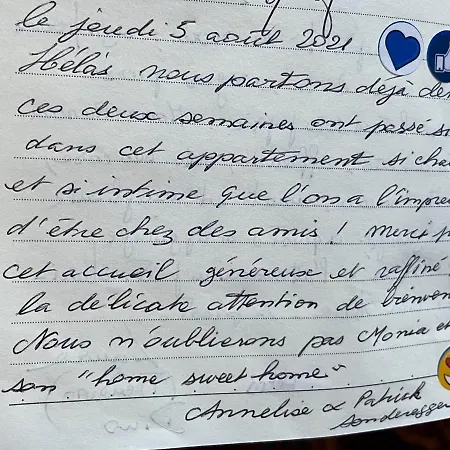 le jeudi 5 août 2021
Hélàs nous partons déjà de
ces deux semaines ont passé si
dans cet appartement si cha
et si intime que l'on a l'impre
d'être chez des amis ! Merci p
cet accueil généreuse et raffiné
la délicate attention de bienven
Nous n'oublierons pas Monia et
son "home sweet home"
Annelise & Patrick
Sonderegger